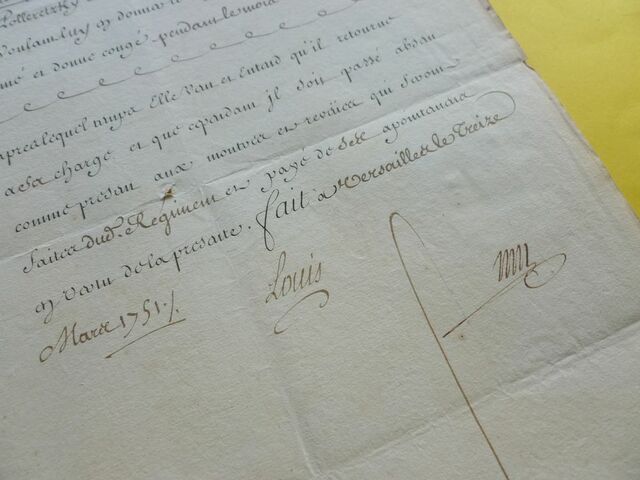 Pollereizky
Voulant luy en donner le
né et donne congé pendant le mois
apres lequel temps Elle veut et Entend qu'il retourne
a sa charge et que cependant il soit passé absan
comme presan aux montres et reveües qui seront
faites dud. Regiment et payé de ses apointemens
en vertu de la presente. fait a Versailles le Treize
Mars 1751./.
Louis